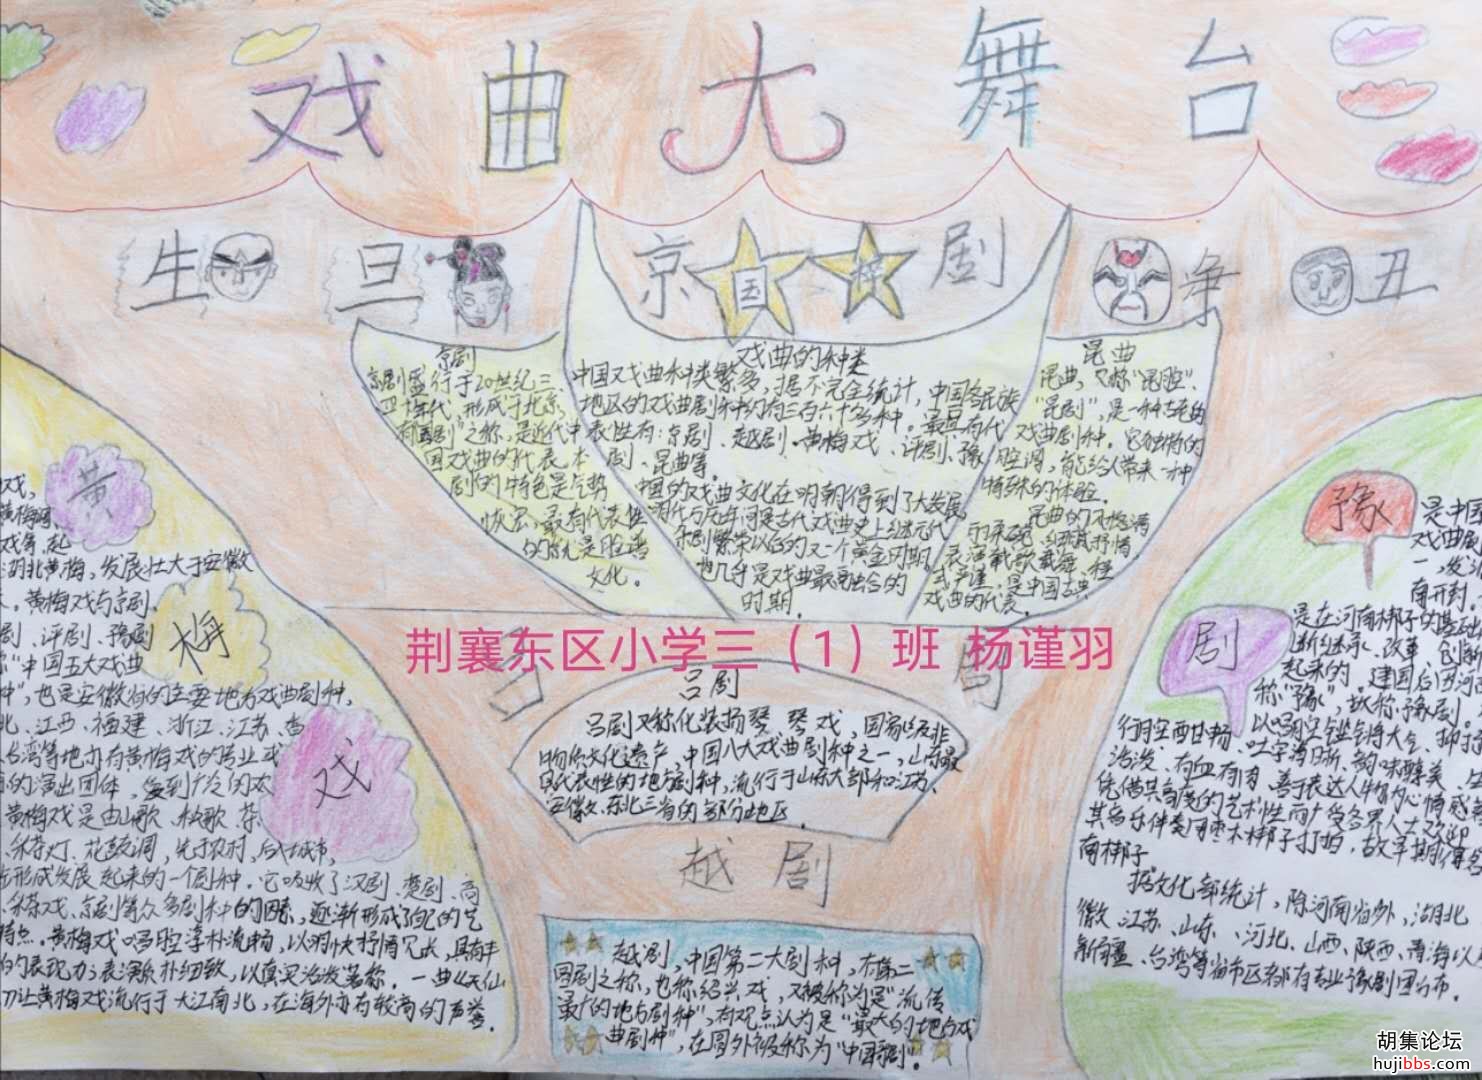 戏曲大舞台
生 旦 京 国 粹 剧 净 丑
京剧
京剧盛行于20世纪三
四十年代,形成于北京,
有"国剧"之称,是近代中
国戏曲的代表。本
剧的特色是气势
恢宏,最有代表性
的就是脸谱
文化。
戏曲的种类
中国戏曲种类繁多,据不完全统计,中国各民族
地区的戏曲剧种约有三百六十多种。最具有代
表性有:京剧、越剧、黄梅戏、评剧、豫
剧、昆曲等。
中国的戏曲文化在明朝得到了大发展
明代
年间是古代戏曲史上继元代
杂剧繁荣以后的又一个黄金时期。
也几乎是戏曲最融合的
时期。
昆曲
昆曲,又称"昆腔"、
"昆剧",是一种古老的
戏曲剧种。它独特的
腔调,能给人带来一种
特殊的体验。
昆曲的风格清
丽柔婉、细腻抒情,
表演载歌载舞、程
式严谨,是中国古典
戏曲的代表。
黄
梅
戏
戏,
黄梅调
戏等,起
湖北黄梅,发展壮大于安徽
。黄梅戏与京剧、
剧、评剧、豫剧
"中国五大戏曲
种",也是安徽省的主要地方戏曲剧种,
北、江西、福建、浙江、江苏、香
台湾等地亦有黄梅戏的专业或
的演出团体,受到广泛的欢
黄梅戏是由山歌、秧歌、茶
、采茶灯、花鼓调,先于农村,后入城市,
形成发展起来的一个剧种。它吸收了汉剧、楚剧、高
、采茶戏、京剧等众多剧种的因素,逐渐形成了自己的艺
特点。黄梅戏唱腔淳朴流畅,以明快抒情见长,具有丰
的表现力;表演质朴细致,以真实活泼著称。一曲《天仙
让黄梅戏流行于大江南北,在海外亦有较高的声誉。
豫
剧
是中国
戏曲剧
一,发
南开封,
是在河南梆子的基础
断继承、改革
创新
起来的。建国后因河南
称"豫",故称豫剧。
以唱腔铿锵大气、抑扬
行腔酣畅、吐字清晰、韵味醇美、生
活泼、有血有肉、善于表达人物内心情感
凭借其高度的艺术性而广受各界人士欢迎
其音乐伴奏用枣木梆子打拍,故早期得名
南梆子
据文化部统计,除河南省外,湖北
徽、江苏、山东、河北、山西、陕西、青海以及
新疆、台湾等省市区都有专业豫剧团分布。
荆襄东区小学三(1)班 杨谨羽
吕 剧
吕剧
吕剧又称化装扬琴、琴戏,国家级非
物质文化遗产,中国八大戏曲剧种之一,山东最
具代表性的地方剧种,流行于山东大部和江苏、
安徽、东北三省的部分地区。
越 剧
越剧,中国第二大剧种,有第二
国剧之称,也称绍兴戏,又被称为是"流传
最广的地方剧种",有观点认为是"最大的地方戏
曲剧种",在国外被称为"中国歌剧"。
胡集论坛
hujibbs.com